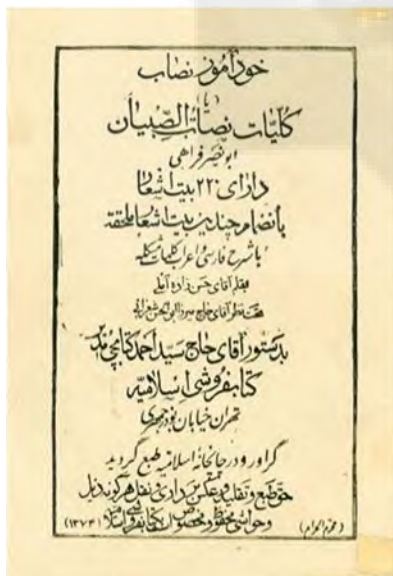 خودآموز نصاب
یا
کلیات نصاب الصبیان
ابونصر فراهی
دارای ۲۲۰ بیت اشعار
بانضمام چندین بیت اشعار ملحقه
باشرح فارسی و اعراب کلمات مشکله
بقلم آقای حسن زاده آملی
تحت نظر آقای حاج میرزا ابوالحسن شعرانی
بدستور آقای حاج سید احمد کتابچی مدیر
کتابفروشی اسلامیه
تهران خیابان بوذرجمهری
گراور و در چاپخانه اسلامیه طبع گردید
حق طبع و تقلید و عکس برداری و نقل هرگونه ذیل
و حواشی محفوظ و مخصوص کتابفروشی اسلامیه (۱۳۷۳)
(محرم الحرام)